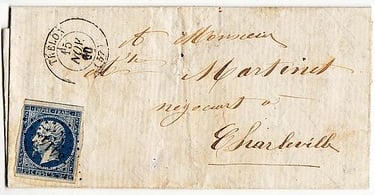 TRELON
15
NOV
60
(57)
A Monsieur
Martinet
négociant à
Charleville